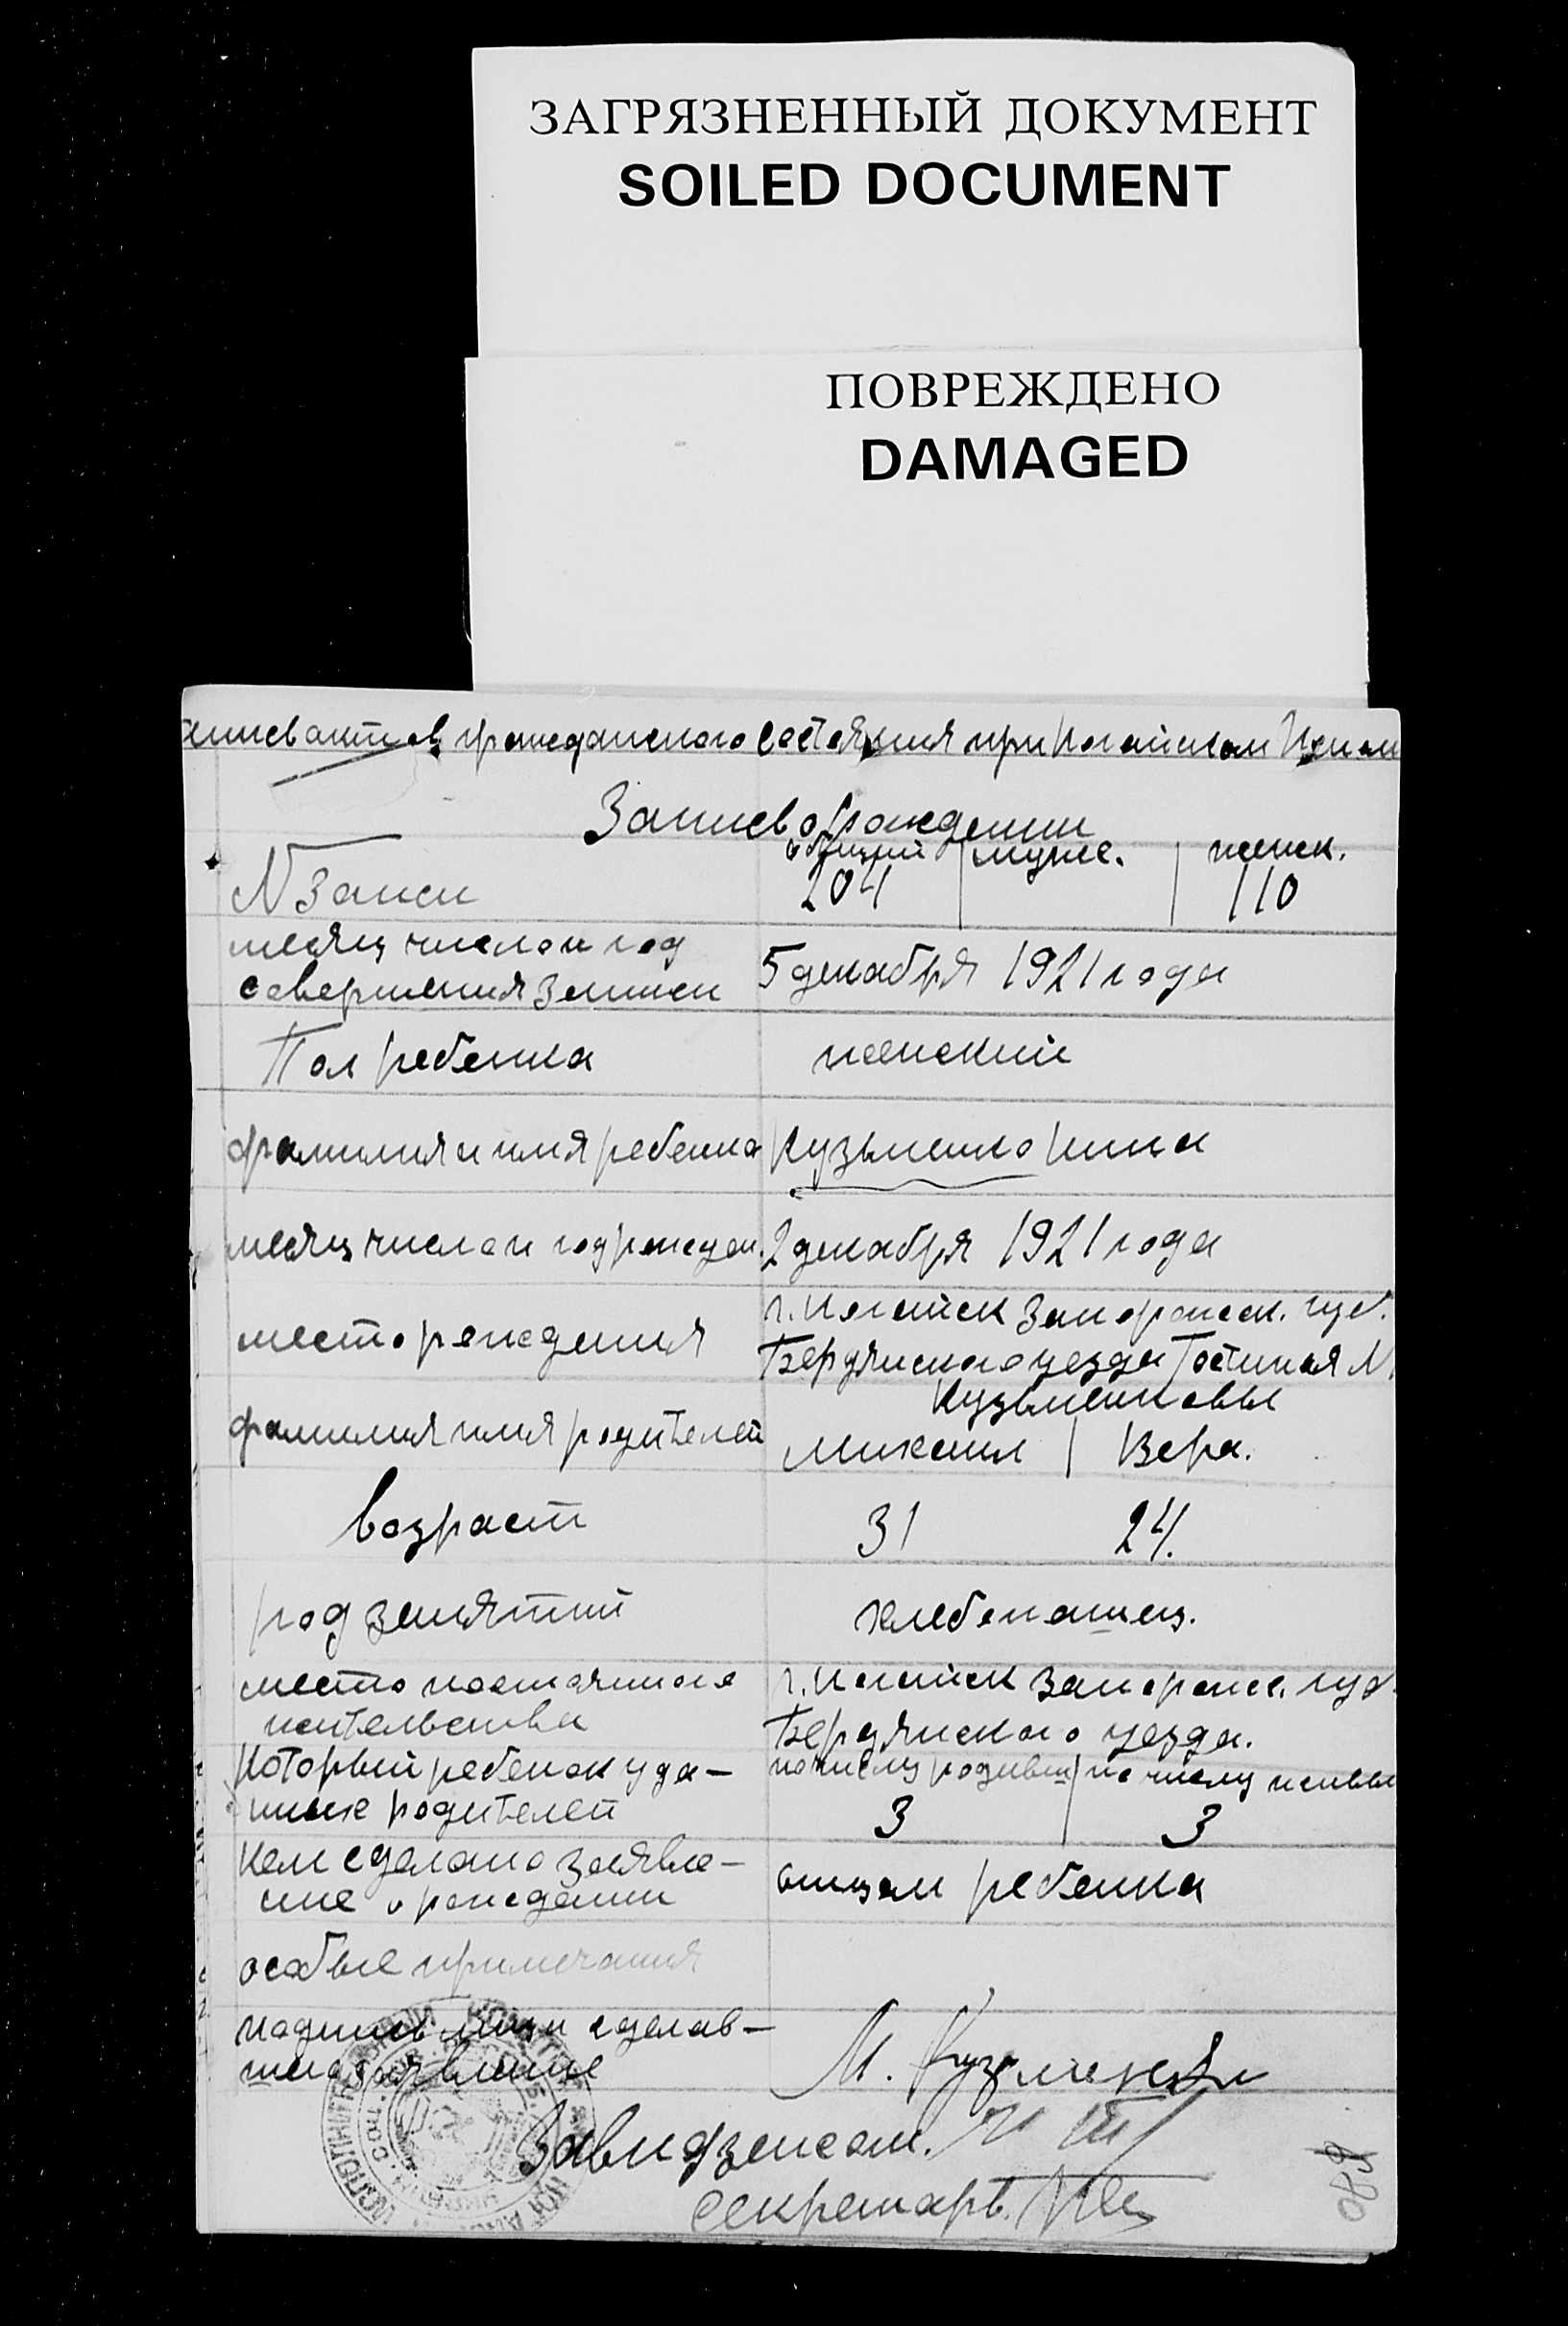 ЗАГРЯЗНЕННЫЙ ДОКУМЕНТ
SOILED DOCUMENT
ПОВРЕЖДЕНО
DAMAGED
актов гражданского состояния при Ногайском
Запись о рождении
общий мужс. женск.
N Записи 204 110
месяц число и год
совершения записи 5 декабря 1921 года
Пол ребенка женский
фамилия и имя ребенка Кузьменко Нина
месяц число и год рожден. 2 декабря 1921 года
г. Ногайск Запорожск. губ.
место рождения Бердянского уезда Гостиная N
Кузьменковы
фамилия имя родителей Михаил Вера.
возраст 31 24.
род занятий хлебопашец.
место постоянного г. Ногайск Запорожс. губ.
жительства Бердянского уезда.
Который ребенок у дан- по числу родивш по числу живых
ных родителей 3 3
Кем сделано заявле- отцом ребенка
ние о рождении
особые примечания
подпись лица сделав- М. Кузменко
шего заявление
Завидзапсом.
секретарь